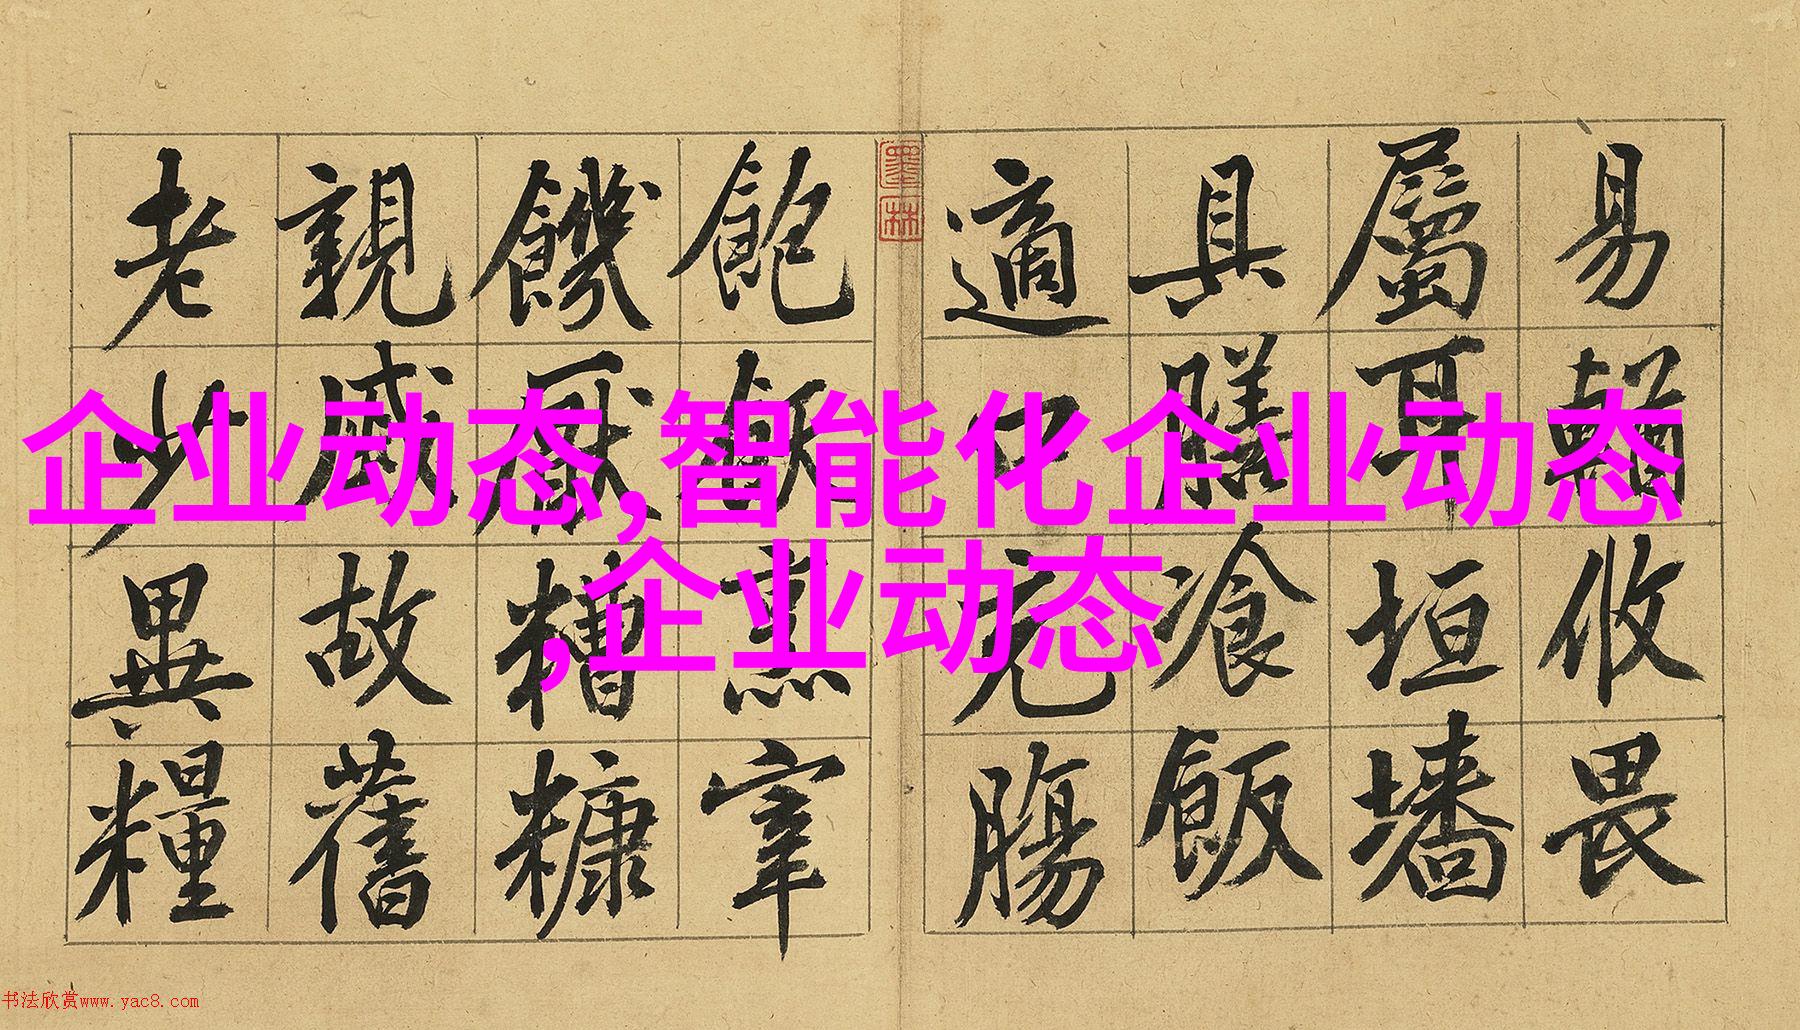 易輶攸畏
屬耳垣墻
具膳飡飯
適口充腸
墨林
飽飫烹宰
饑厭糟糠
親戚故舊
老少異糧
企业动态,智能化企业动态
,企业动态
书法欣赏www.yac8.com